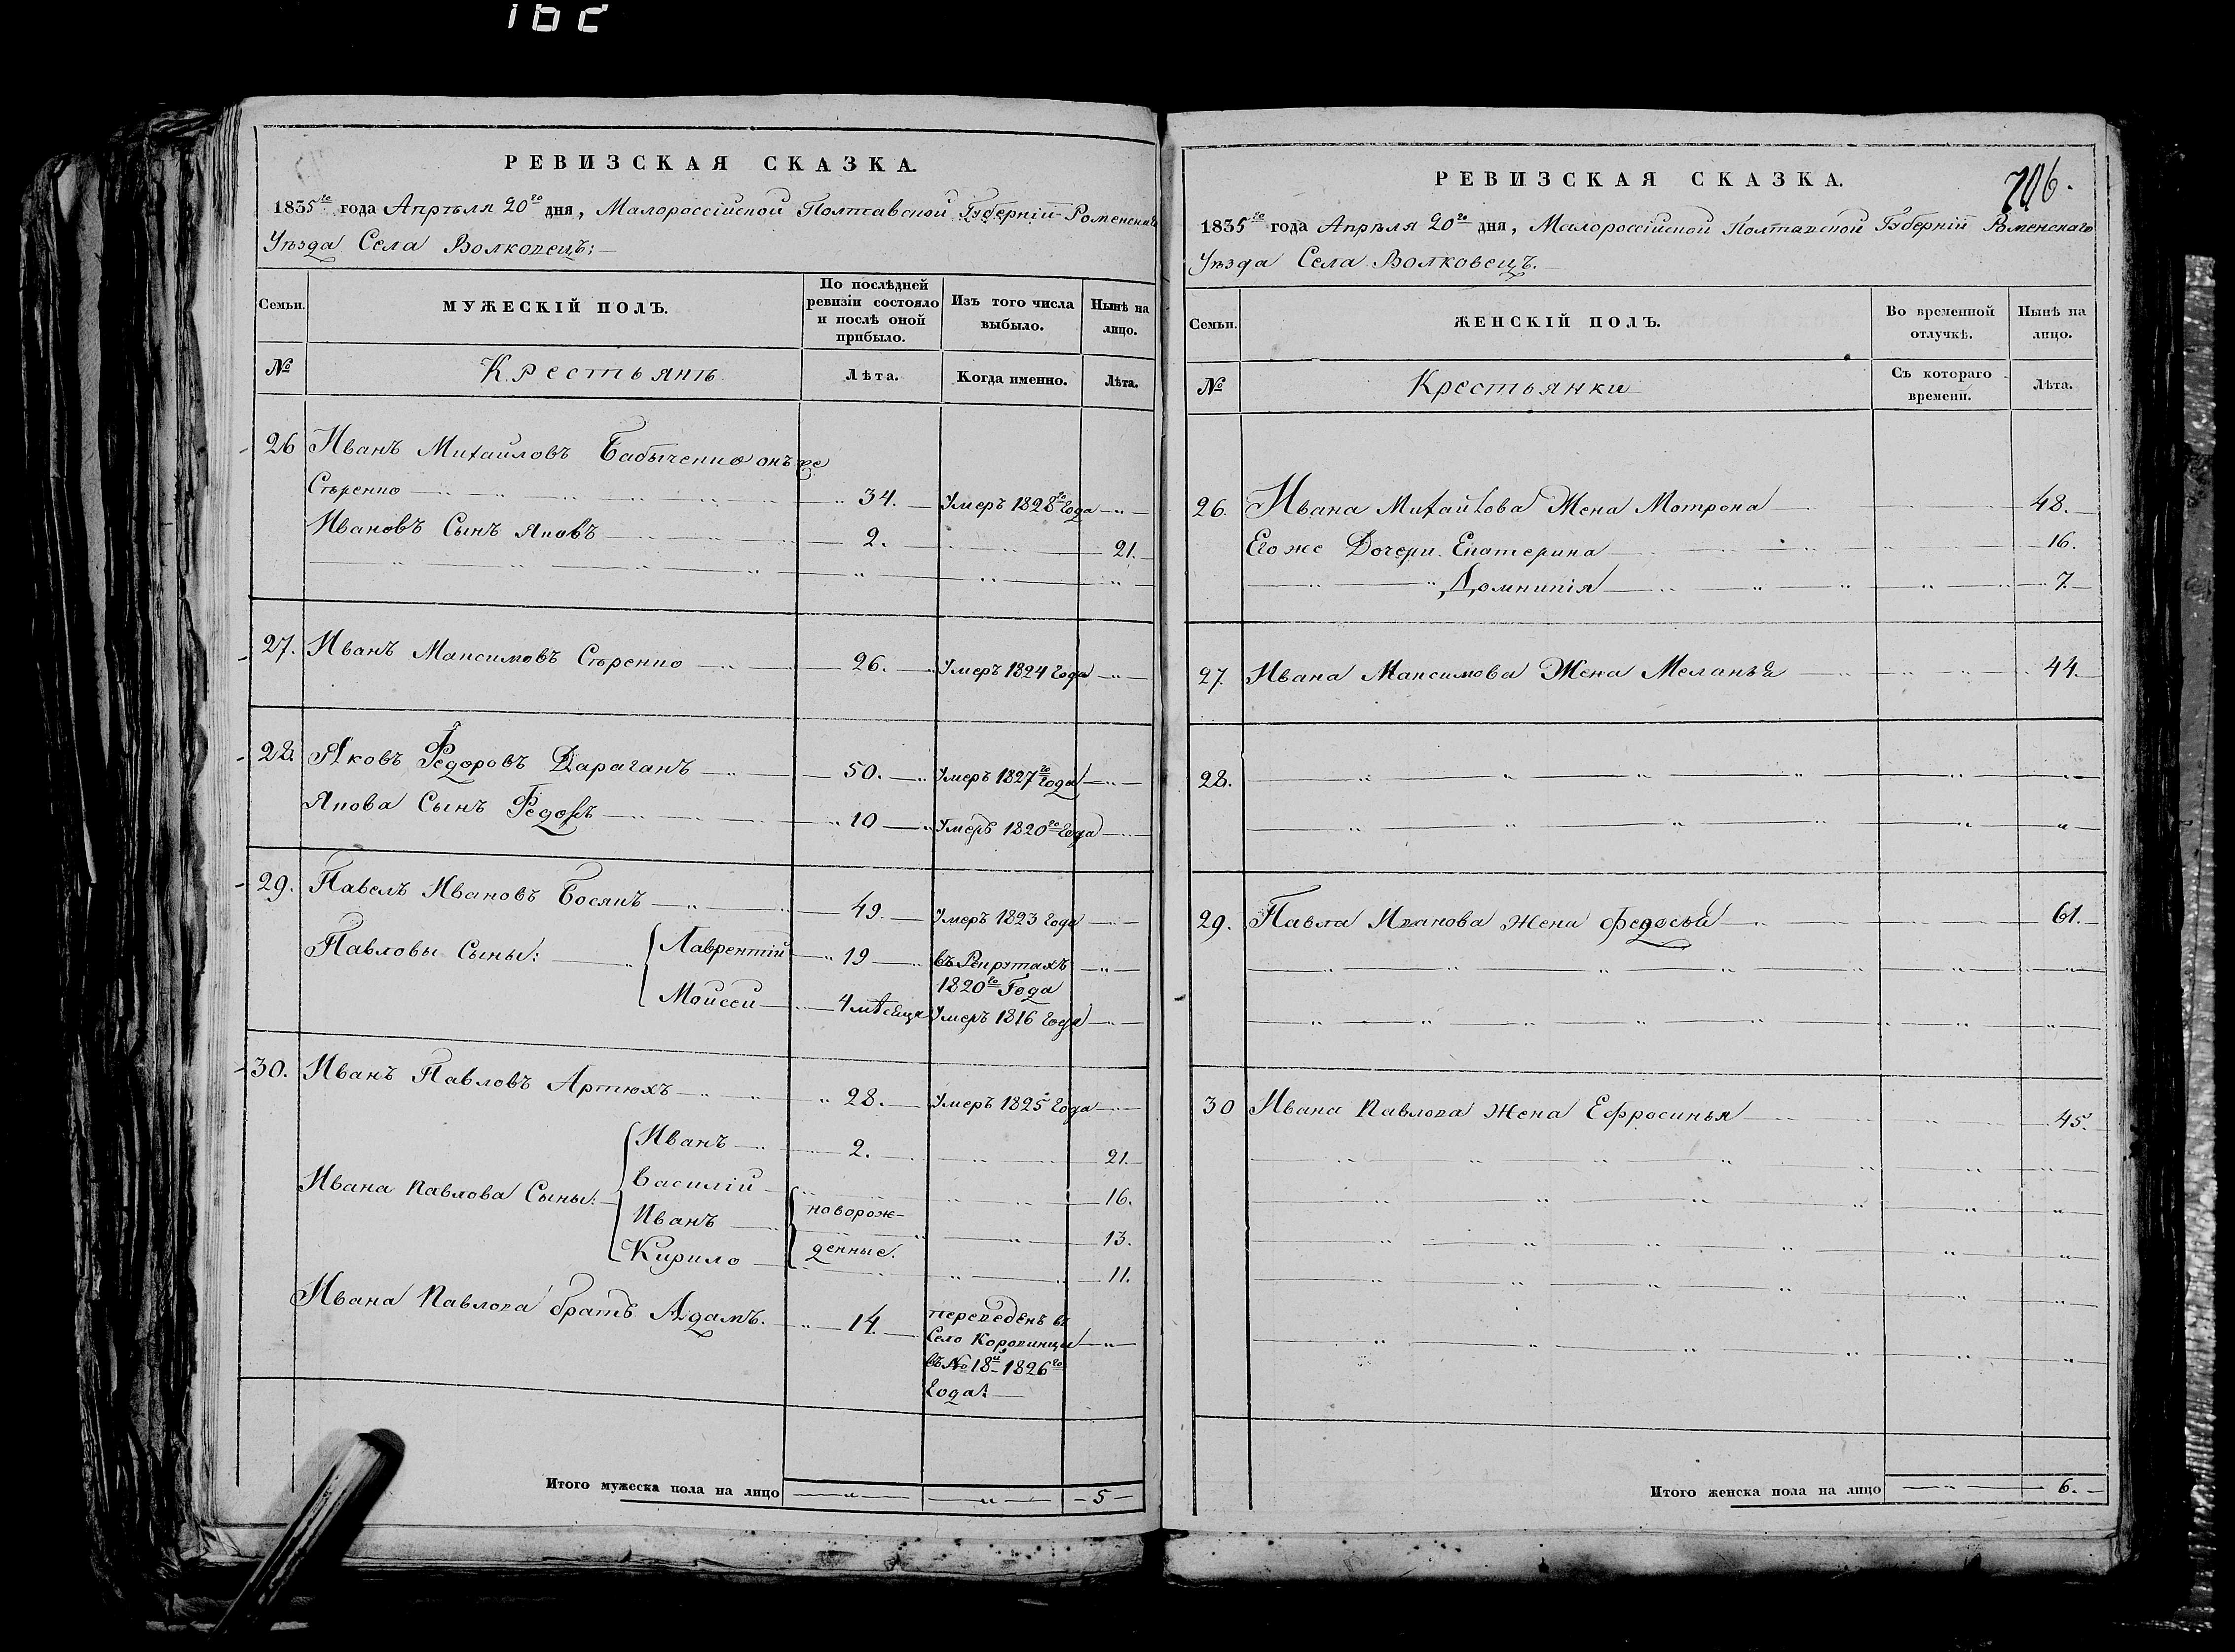 162
РЕВИЗСКАЯ СКАЗКА.
1835го года Апрѣля 20го дня, Малороссійской Полтавской Губерніи Роменскаго
Уѣзда Села Волковецъ:
Семьи.
МУЖЕСКІЙ ПОЛЪ.
По послѣдней
ревизіи состояло
и послѣ оной
прибыло.
Изъ того числа
выбыло.
Нынѣ на
лицо.
№
Крестьянъ
Лѣта.
Когда именно.
Лѣта.
26 Иванъ Михайловъ онъ же
Стѣренко 34. Умеръ 1828го Года
Ивановъ Сынъ Яковъ 2. 21.
27. Иванъ Максимовъ Стѣренко 26. Умеръ 1824 Года
28. Яковъ Федоровъ Дараганъ 50. Умеръ 1827го Года
Якова Сынъ Федоръ 10 Умеръ 1820го Года
29. Павелъ Ивановъ Босякъ 49. Умеръ 1823 Года
Павловы Сыны: Лаврентій 19 въ Рекрутахъ
1820го Года
Моисей 4 мѣсяца Умеръ 1816 Года
30. Иванъ Павловъ Артюхъ 28. Умеръ 1825 Года
Иванъ 2. 21.
Ивана Павлова Сыны: Василій 16.
Иванъ новорож- 13.
Кирило денные. 11.
Ивана Павлова братъ Адамъ. 14. переведенъ въ
Село Коровинцы
въ № 18й 1826го
Года.
Итого мужеска пола на лицо 5
706.
РЕВИЗСКАЯ СКАЗКА.
1835го года Апрѣля 20го дня, Малороссійской Полтавской Губерніи Роменскаго
Уѣзда Села Волковецъ.
Семьи.
ЖЕНСКІЙ ПОЛЪ.
Во временной
отлучкѣ.
Нынѣ на
лицо.
№
Крестьянки
Съ котораго
времени.
Лѣта.
26. Ивана Михайлова Жена Мотрона 48.
Его же Дочери Екатерина 16.
Домникія 7.
27. Ивана Максимова Жена Меланья 44.
28.
29. Павла Иванова жена Федосья 61.
30 Ивана Павлова жена Ефросинья 45.
Итого женска пола на лицо 6.